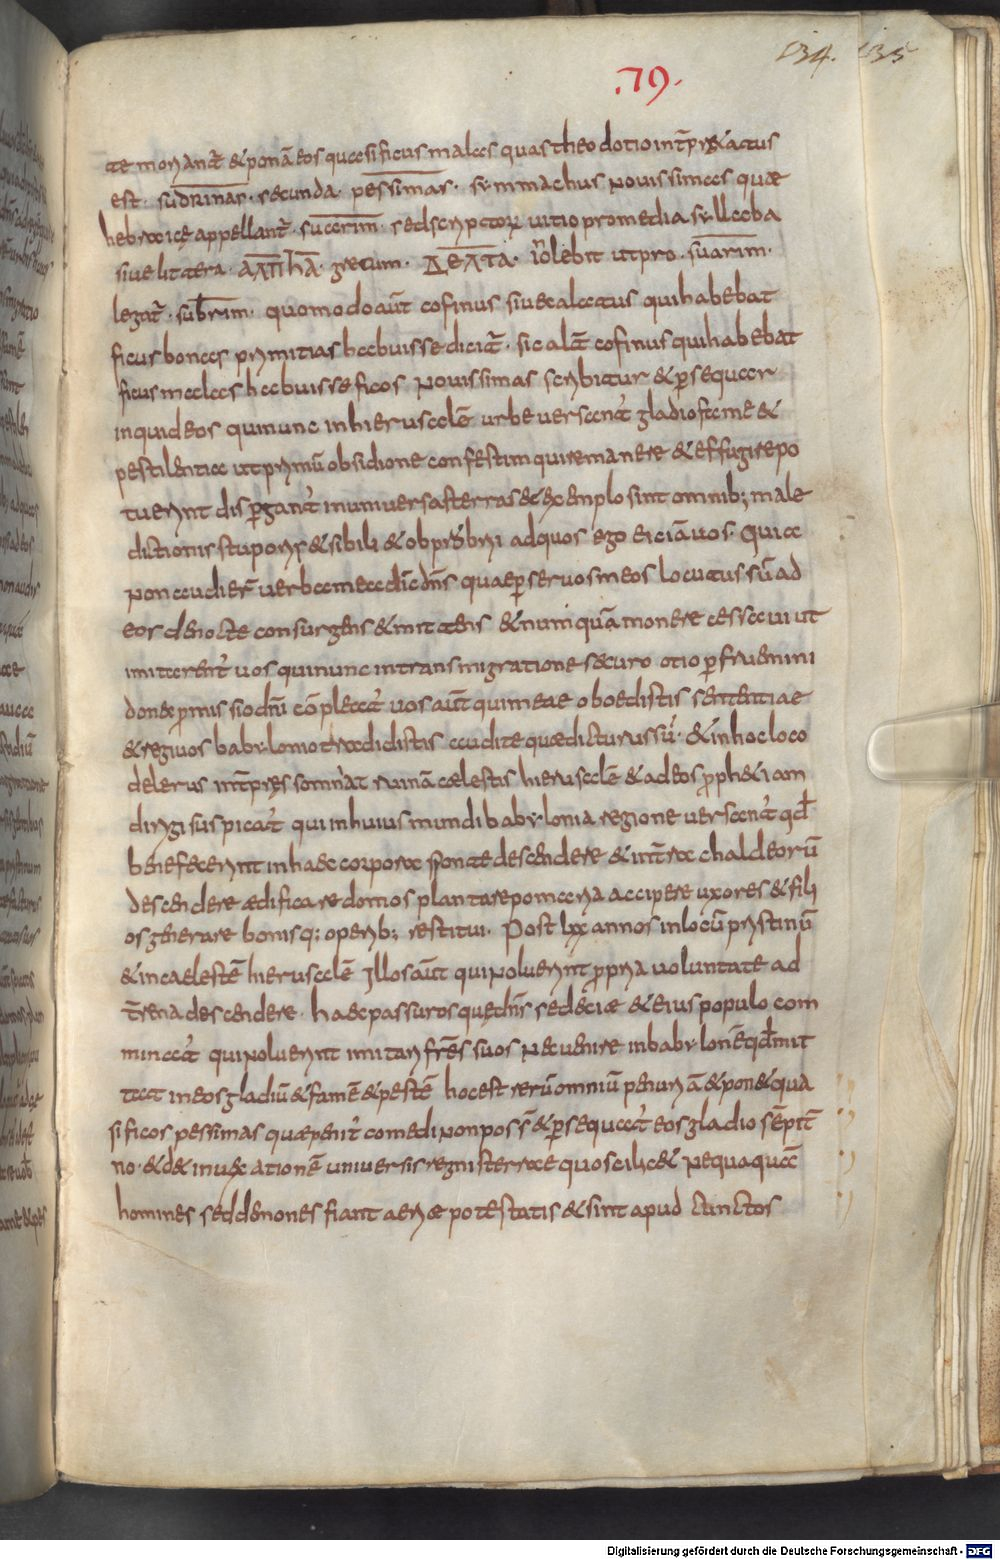 .79.
134. 135
te morant̄ & ponā eos quasi ficus malas quas theodotio int̄pr&atus
est · sudrinas · secunda · pessimas · symmachus novissimas quae
hebraice appellant̄ · suaerim · sed scriptorū vitio pro media syllaba
sive littera · ΑΛΠHA · grecum · ΔΕΛΤΑ · inolebit ut pro · suarim ·
legat̄ · subrim · quomodo aut̄ cofinus sive calatus qui habebat
ficus bonas primitias habuisse dicit̄ · sic alat̄ cofinus qui habebat
ficus malas habuisse ficos novissimas scribitur & p̄sequar
inquid eos qui nunc in hierusalē urbe versant̄ gladio fame &
pestilentia ut primū obsidione confestim qui remanere & effugire po
tuerint disp̄gant̄ in universas terras & exemplo sint omnib; male
dictionis stuporis & sibili & obprobrii ad quos ego eiciā vos · Quia
non audier̄ verba mea dic̄ dn̄s quae p̄ servos meos locutus sū ad
eos de nocte consurgens & mittens & nunquā monere cessavi ut
mitterent̄ vos qui nunc in transmigratione securo otio p̄fruemini
donec p̄missio dn̄i cōpleat̄ vos aut̄ qui meae oboedistis sententiae
& regi vos babylonio tradidistis audite quae dicturus sū · & in hoc loco
delerus int̄pres somniat ruinā caelestis hierusalē & ad eos proph&iam
dirigi suspicat̄ qui in huius mundi babylonia regione versant̄ qd̄
benefecerint in haec corpora sponte descendere & in t̄ra chaldeorū
descendere aedificare domos plantare pomaria accipere uxores & fili
os generare bonisq; operib; restitui · Post lxx annos in locū pristinū
& in caelestē hierusalē Illos aut̄ qui noluerint propria voluntate ad
t̄rena descendere · haec passuros quę dn̄s sedeciae & eius populo com
minat̄ qui noluerint imitari fr̄es suos nec venire in babylonē qd̄ mit
tat in eos gladiū & famē & pestē hoc est rerū omniū penuriā & pon& qua
si ficos pessimas quae penit̄ comedi non poss̄ & p̄sequat̄ eos gladio sēpit̄
no · & d& in vexationē universis regnis terrae quos eilic& nequaquā
homines sed demones fiant aeriae potestatis & sint apud cunctos
Digitalisierung gefördert durch die Deutsche Forschungsgemeinschaft - DFG